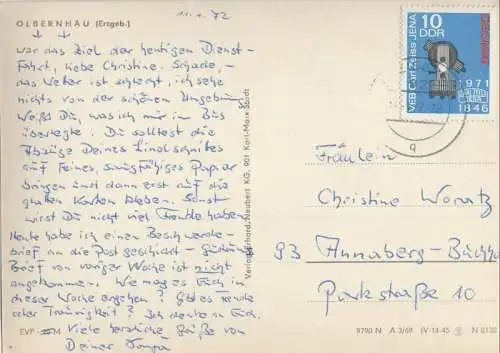 11.1.72
OLBERNHAU (Erzgeb.)
war das Ziel der heutigen Dienst-
fahrt, liebe Christine. Schade, -
das Wetter ist schlecht, ich sehe
nichts von der schönen Umgebung.
Weißt Du, was ich mir im Bus
überlegte. Du solltest die
Abzüge Deines Linolschnittes
auf feines, saugfähiges Papier
bringen und dann erst auf die
glatten Karten kleben. Sonst
wirst Du nicht viel Freude haben.
Heute habe ich einen Beschwerde-
brief an die Post geschickt -
Brief von voriger Woche ist nicht
angekommen. Wie mag es Euch in
dieser Woche ergehen? Gibt es Freude
oder Traurigkeit? Ich denke an Euch.
Viele herzliche Grüße von
Deiner
EVP M
Verlag Erhard Neubert KG, 901 Karl-Marx-Stadt
10
DDR
VEB Carl Zeiss JENA
1971
1846
Fräulein
Christine
93 Annaberg-Buchh
Parkstraße 10
9790 N A 3/69 IV-14-45 N 0132